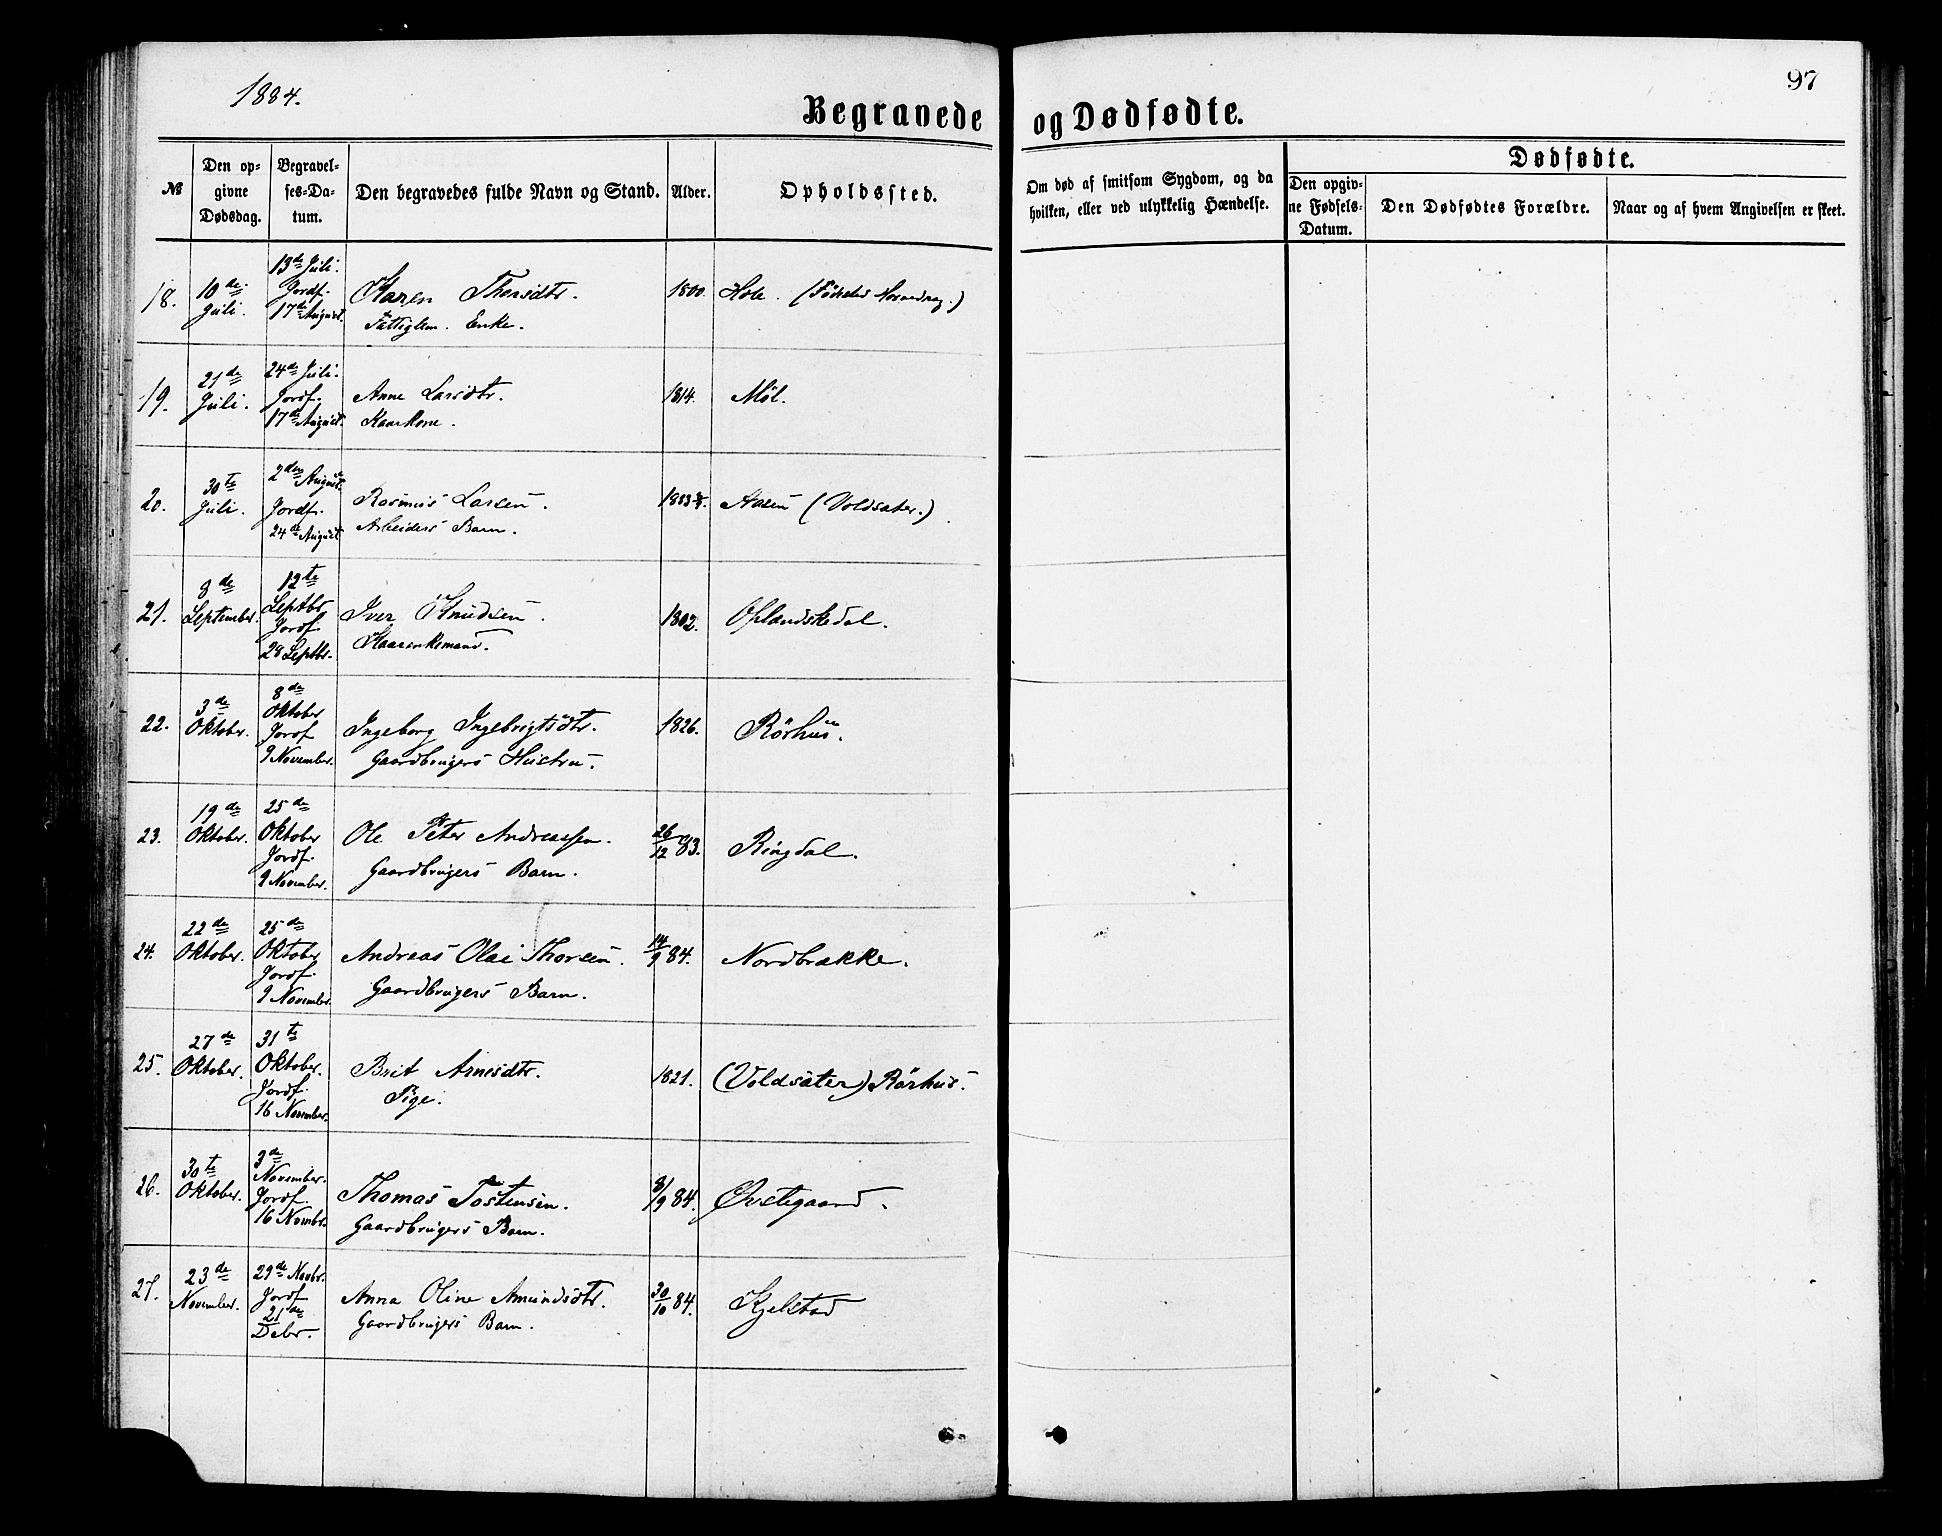 1884.
97
Begravede og Dødfødte.
№
Den op-
givne
Dødsdag.
Begravel-
ses-Da-
tum.
Den begravedes fulde Navn og Stand.
Alder.
Opholdssted.
Om død af smitsom Sygdom, og da
hvilken, eller ved ulykkelig Hændelse.
Dødfødte.
Den opgiv-
ne Fødsels-
Datum.
Den Dødfødtes Forældre.
Naar og af hvem Angivelsen er skeet.
18.
10de
Juli.
13de Juli.
Jordf.
17de August.
Karen Thoresdtr.
Fattiglem. Enke.
1800.
Hole. (Fødested
19.
21de
Juli.
24de Juli.
Jordf.
17de August.
Anne Larsdtr.
Kaarkone.
1814.
Møl.
20.
30te
Juli.
2den August.
Jordf.
24de August
Rasmus Larsen.
Arbeiders Barn.
1883
Aasen (Voldsæter.)
21.
8de
September.
12te
Septbr
Jordf
28 Septbr.
Iver Knudsen.
Kaarenkemand.
1802.
Oplandskedal.
22.
3de
Oktober.
8de
Oktober
Jordf
9 November.
Ingeborg Ingebrigtsdtr.
Gaardbrugers Hustru.
1826.
Rörhus.
23.
19de
Oktober.
25de
Oktober
Jordf.
9 November.
Ole Peter Andreassen.
Gaardbrugers Barn.
26/12 83.
Ringdal.
24.
22de
Oktober.
25de
Oktober
Jordf.
9 Novembr.
Andreas Olai Thorsen.
Gaardbrugers Barn.
14/9 84.
Nordbrække.
25.
27de
Oktober.
31te
Oktober.
Jordf.
16 November.
Brit Arnesdtr.
Pige.
1821.
(Voldsäter) Rörhus.
26.
30te
Oktober.
3de
November.
Jordf.
16 Novembr.
Thomas Tostensen.
Gaardbrugers Barn.
8/9 84.
Øvstegaard.
27.
23de
November.
29de Novbr.
Jordf
21de
Debr.
Anna Oline Amundsdtr.
Gaardbrugers Barn.
30/10 84.
Kjelstad